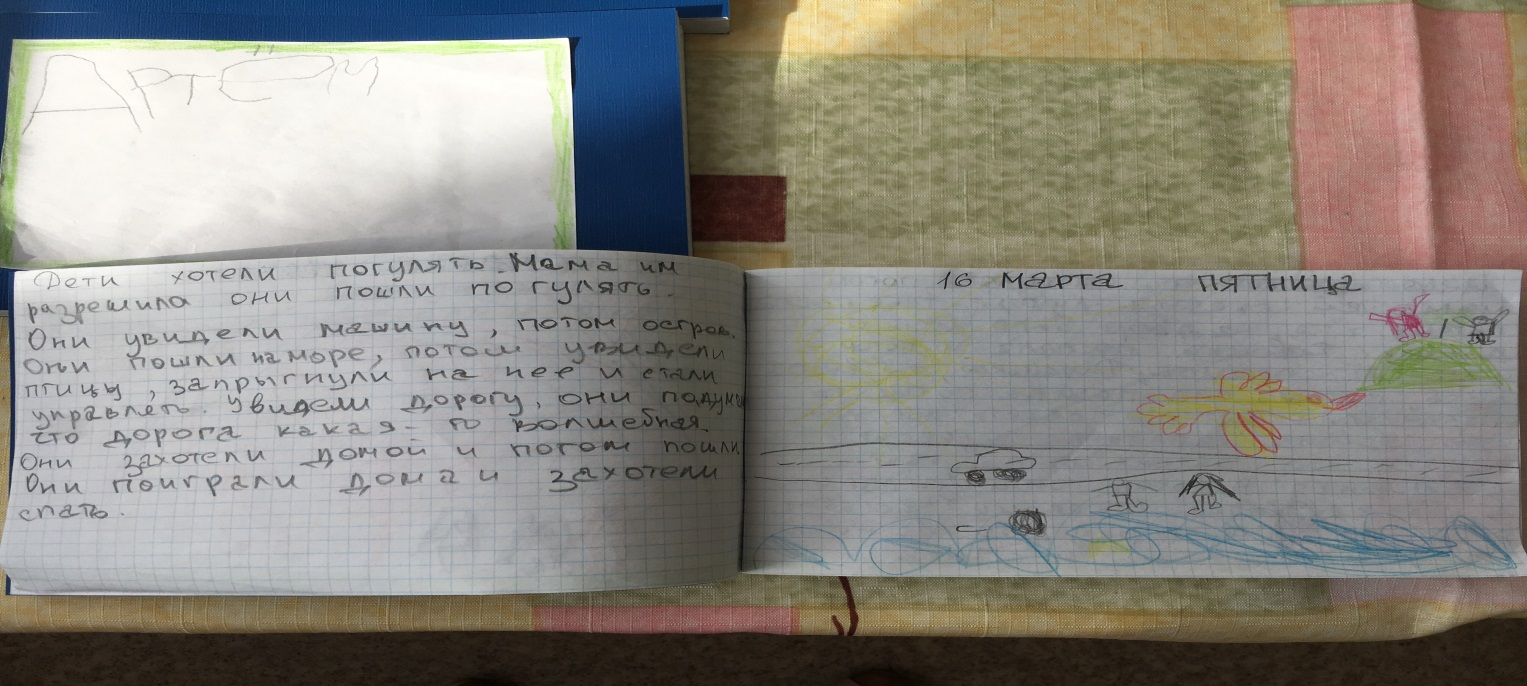 Артём
Дети хотели погулять. Мама им
разрешила они пошли по гулять.
Они увидели машину, потом остров.
Они пошли на море, потом увидели
птицу, запрыгнули на нее и стали
управлеть. Увидели дорогу, они подума
что дорога какая-то волшебная.
Они захотели домой и потом пошли
Они поиграли дома и захотели
спать.
16 марта пятница